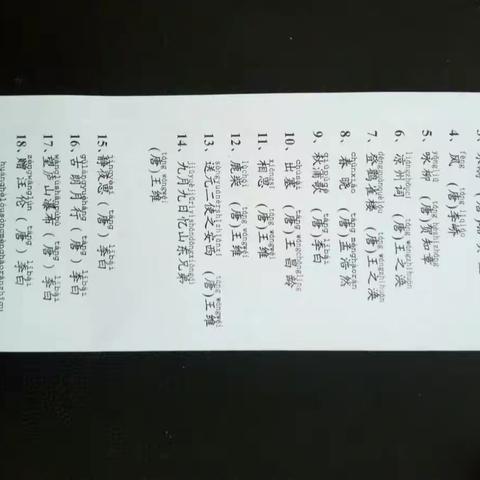 fēng táng lǐjiào
4、风 (唐)李峤
yǒngliǔ táng hèzhīzhāng
5、咏柳 (唐)贺知章
liángzhōucí táng wángzhīhuàn
6、凉州词 (唐)王之涣
dēngguànquèlóu táng wángzhīhuàn
7、登鹳雀楼 (唐)王之涣
chūnxiǎo táng mènghàorán
8、春晓 (唐)孟浩然
qiūpǔgē táng lǐbái
9、秋浦歌 (唐)李白
chūsài táng wángchānglíng
10、出塞 (唐)王昌龄
xiāngsī táng wángwéi
11、相思 (唐)王维
lùchái táng wángwéi
12、鹿柴 (唐)王维
sòngyuánèrshǐānxī táng wángwéi
13、送元二使之安西 (唐)王维
jiǔyuèjiǔrìyìshāndōngxiōngdì
14、九月九日忆山东兄弟
táng wángwéi
(唐)王维
jìngyèsī táng lǐbái
15、静夜思 (唐) 李白
gǔlǎngyuèxíng táng lǐbái
16、古朗月行 (唐) 李白
wànglúshānpùbù táng lǐbái
17、望庐山瀑布 (唐) 李白
zèngwānglún táng lǐbái
18、赠汪伦 (唐) 李白
huánghèlóusòngmènghàoránzhīguǎng